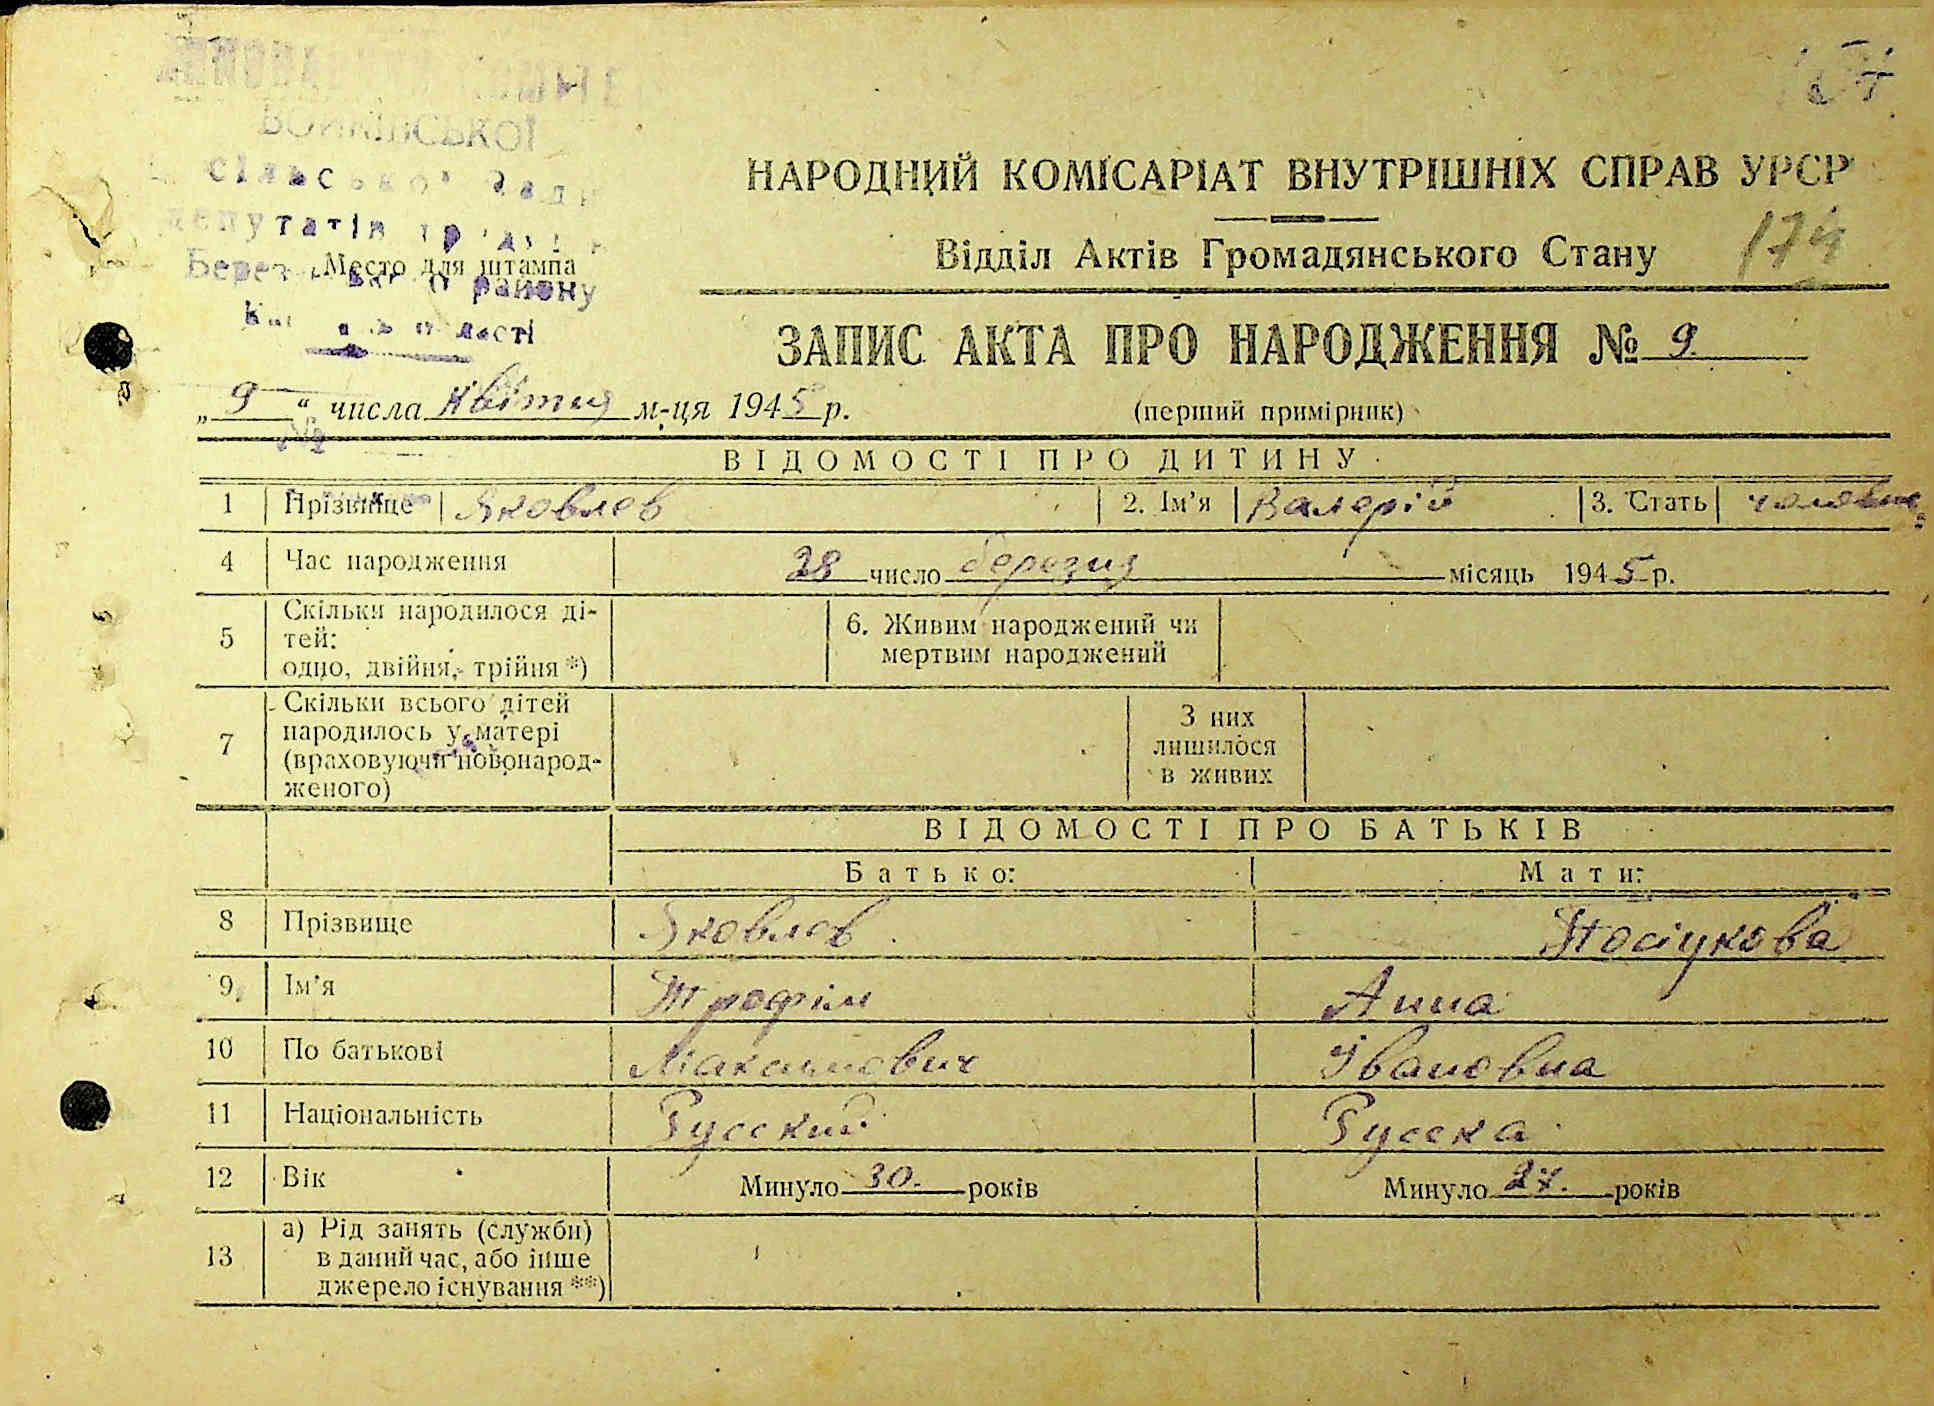 сільської Ради
депутатів
Место для штампа
району
НАРОДНИЙ КОМІСАРІАТ ВНУТРІШНІХ СПРАВ УРСР
Відділ Актів Громадянського Стану 174
ЗАПИС АКТА ПРО НАРОДЖЕННЯ № 9.
„ 9 “ числа Квітня м-ця 1945 р. (перший примірник)
ВІДОМОСТІ ПРО ДИТИНУ
1 Прізвище Яковлев 2. Ім’я Валерій 3. Стать
4 Час народження 28 число березня місяць 1945 р.
5 Скільки народилося ді-
тей:
одно, двійня, трійня *)
6. Живим народжений чи
мертвим народжений
7 Скільки всього дітей
народилось у матері
(враховуючи новонарод-
женого)
З них
лишилося
в живих
ВІДОМОСТІ ПРО БАТЬКІВ
Батько: Мати:
8 Прізвище Яковлев
9 Ім’я Трофім Анна
10 По батькові Максимович Івановна
11 Національність Русский Русска
12 Вік Минуло 30. років Минуло 27. років
13 а) Рід занять (служби)
в даний час, або інше
джерело існування **)